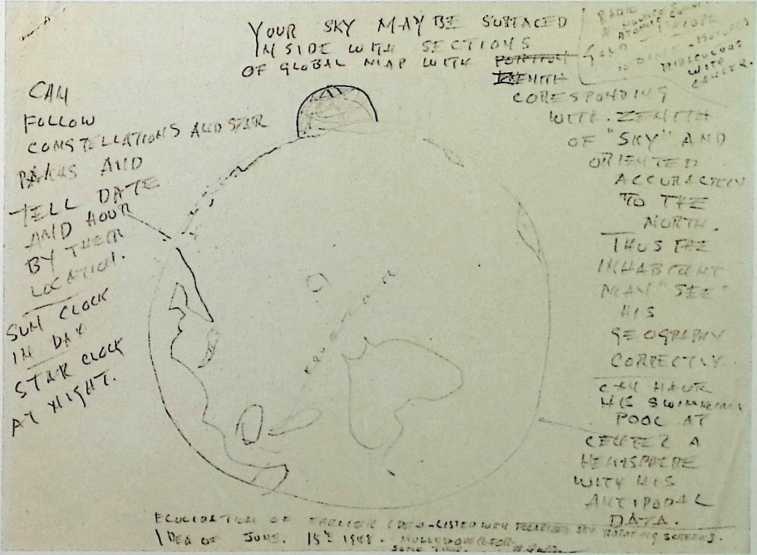 YOUR SKY MAY BE SURFACED
INSIDE WITH SECTIONS
OF GLOBAL MAP WITH PORTION
ZENITH
CORESPONDING
WITH ZENITH
OF "SKY" AND
ORIENTED
ACCURATELY
TO THE
NORTH.
THUS THE
INHABITENT
MAY "SEE"
HIS
GEOGRAPHY
CORRECTLY.
CAN HAVE
HIS SWIMMING
POOL AT
CENTER A
HEMISPHERE
WITH HIS
ANTIPODAL
DATA.
CAN
FOLLOW
CONSTELLATIONS AND STAR
PATHS AND
TELL DATE
AND HOUR
BY THEIR
LOCATION.
SUN CLOCK
IN DAY
STAR CLOCK
AT NIGHT.
EQUATOR
WITH
CANCER.
ELUCIDATION OF EARLIER IDEA-LISTED WITH
IDEA OF JUNE. 15TH 1948.
SAME TIME.